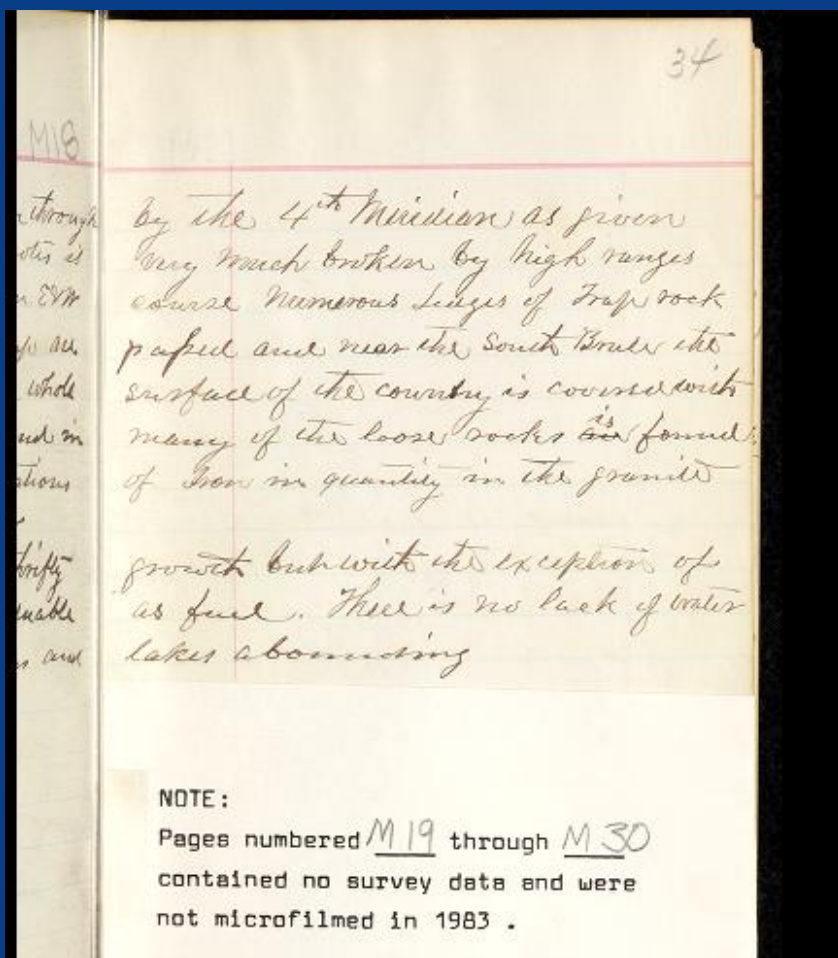 34
M18
through
otes is
n E&W
are
whole
and in
ations
thrifty
uable
and
by the 4th Meridian as given
very much broken by high ranges
course Numerous Ledges of Trap rock
passed and near the South Brule the
surface of the country is covered with
many of the loose rocks is found
of Iron in quantity in the granite
growth but with the exception of
as fuel. There is no lack of water
lakes abounding
NOTE:
Pages numbered M 19 through M 30
contained no survey data and were
not microfilmed in 1983 .